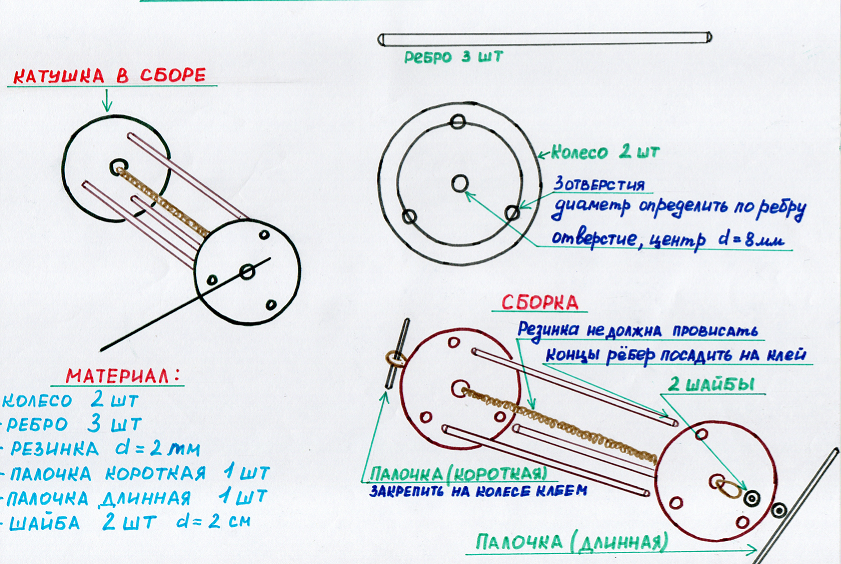 КАТУШКА В СБОРЕ
РЕБРО 3 ШТ
КОЛЕСО 2 ШТ
3 ОТВЕРСТИЯ
ДИАМЕТР ОПРЕДЕЛИТЬ ПО РЕБРУ
ОТВЕРСТИЕ, ЦЕНТР d=8 мм
СБОРКА
РЕЗИНКА НЕ ДОЛЖНА ПРОВИСАТЬ
КОНЦЫ РЁБЕР ПОСАДИТЬ НА КЛЕЙ
2 ШАЙБЫ
ПАЛОЧКА (КОРОТКАЯ)
ЗАКРЕПИТЬ НА КОЛЕСЕ КЛЕЕМ
ПАЛОЧКА (ДЛИННАЯ)
МАТЕРИАЛ:
КОЛЕСО 2 ШТ
- РЕБРО 3 ШТ
- РЕЗИНКА d=2 мм
- ПАЛОЧКА КОРОТКАЯ 1 ШТ
- ПАЛОЧКА ДЛИННАЯ 1 ШТ
- ШАЙБА 2 ШТ d=2 см